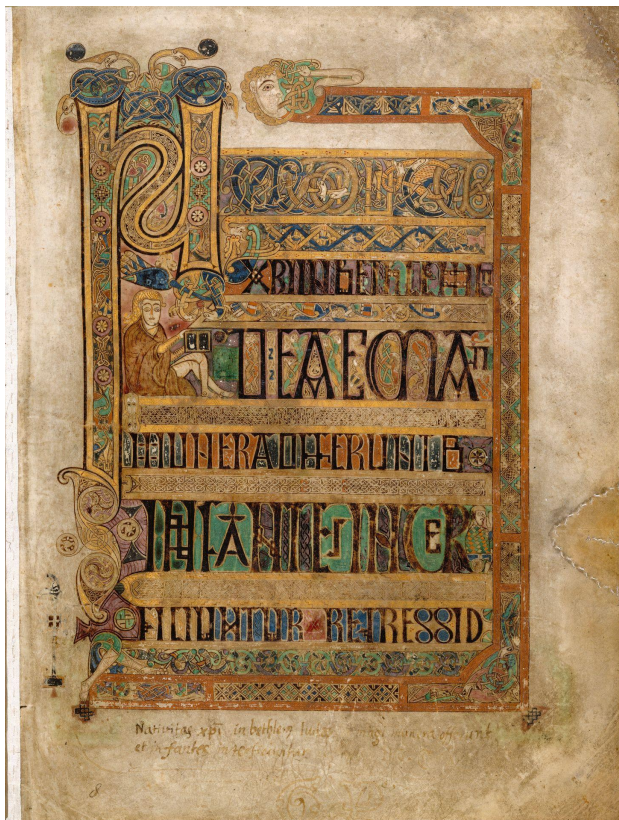 NATIUITAS
XPI IN BETHLEM
IUDEAE MA
GI MUNERA OFFERUNT
INFANTES INTER
FICIUNTUR REGRESSIO
Nativitas xpi in bethlem iudeae magi munera offerunt
et infantes interficiuntur
8